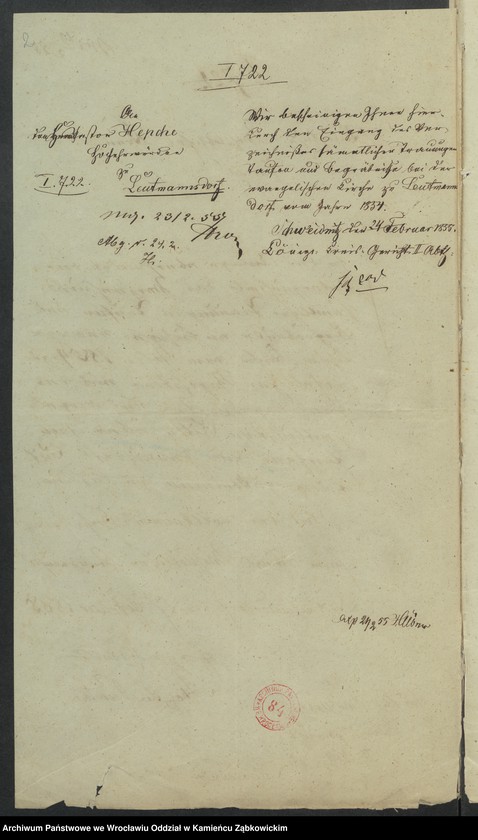 2
I 722
An
den Herrn Pastor Hepche
Hochehrwürden
zu
I. 722.
Leutmannsdorf.
Wir bescheinigen Ihnen hier-
durch den Eingang des Ver-
zeichnisses sämmtlicher Trauungen
Taufen und Begräbnisse bei der
evangelischen Kirche zu Leutmanns
dorf vom Jahre 1854.
Schweidnitz den 24 Februar 1855.
Königl. Kreis-Gericht II Abth:
23/2.
24. 2.
exp 24/2 55
84
Archiwum Państwowe we Wrocławiu Oddział w Kamieńcu Ząbkowickim